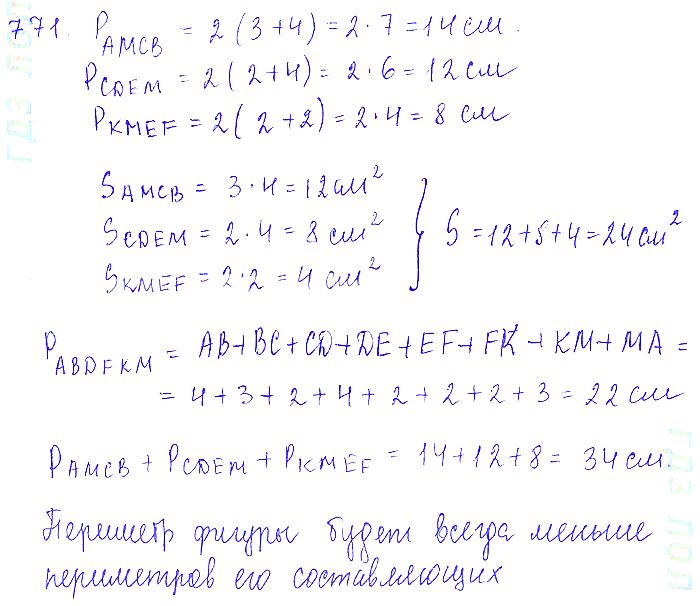 771. P AMCB = 2 (3+4) = 2·7 = 14 см.
P CDEM = 2 (2+4) = 2·6 = 12 см
P KMEF = 2 (2+2) = 2·4 = 8 см
S AMCB = 3·4 = 12 см²
S CDEM = 2·4 = 8 см²
S KMEF = 2·2 = 4 см²
} S = 12+8+4 = 24 см²
P ABDFKM = AB+BC+CD+DE+EF+FK+KM+MA =
= 4+3+2+4+2+2+2+3 = 22 см
P AMCB + P CDEM + P KMEF = 14+12+8 = 34 см.
Периметр фигуры будет всегда меньше
периметров его составляющих
гдз лол
гдз лол